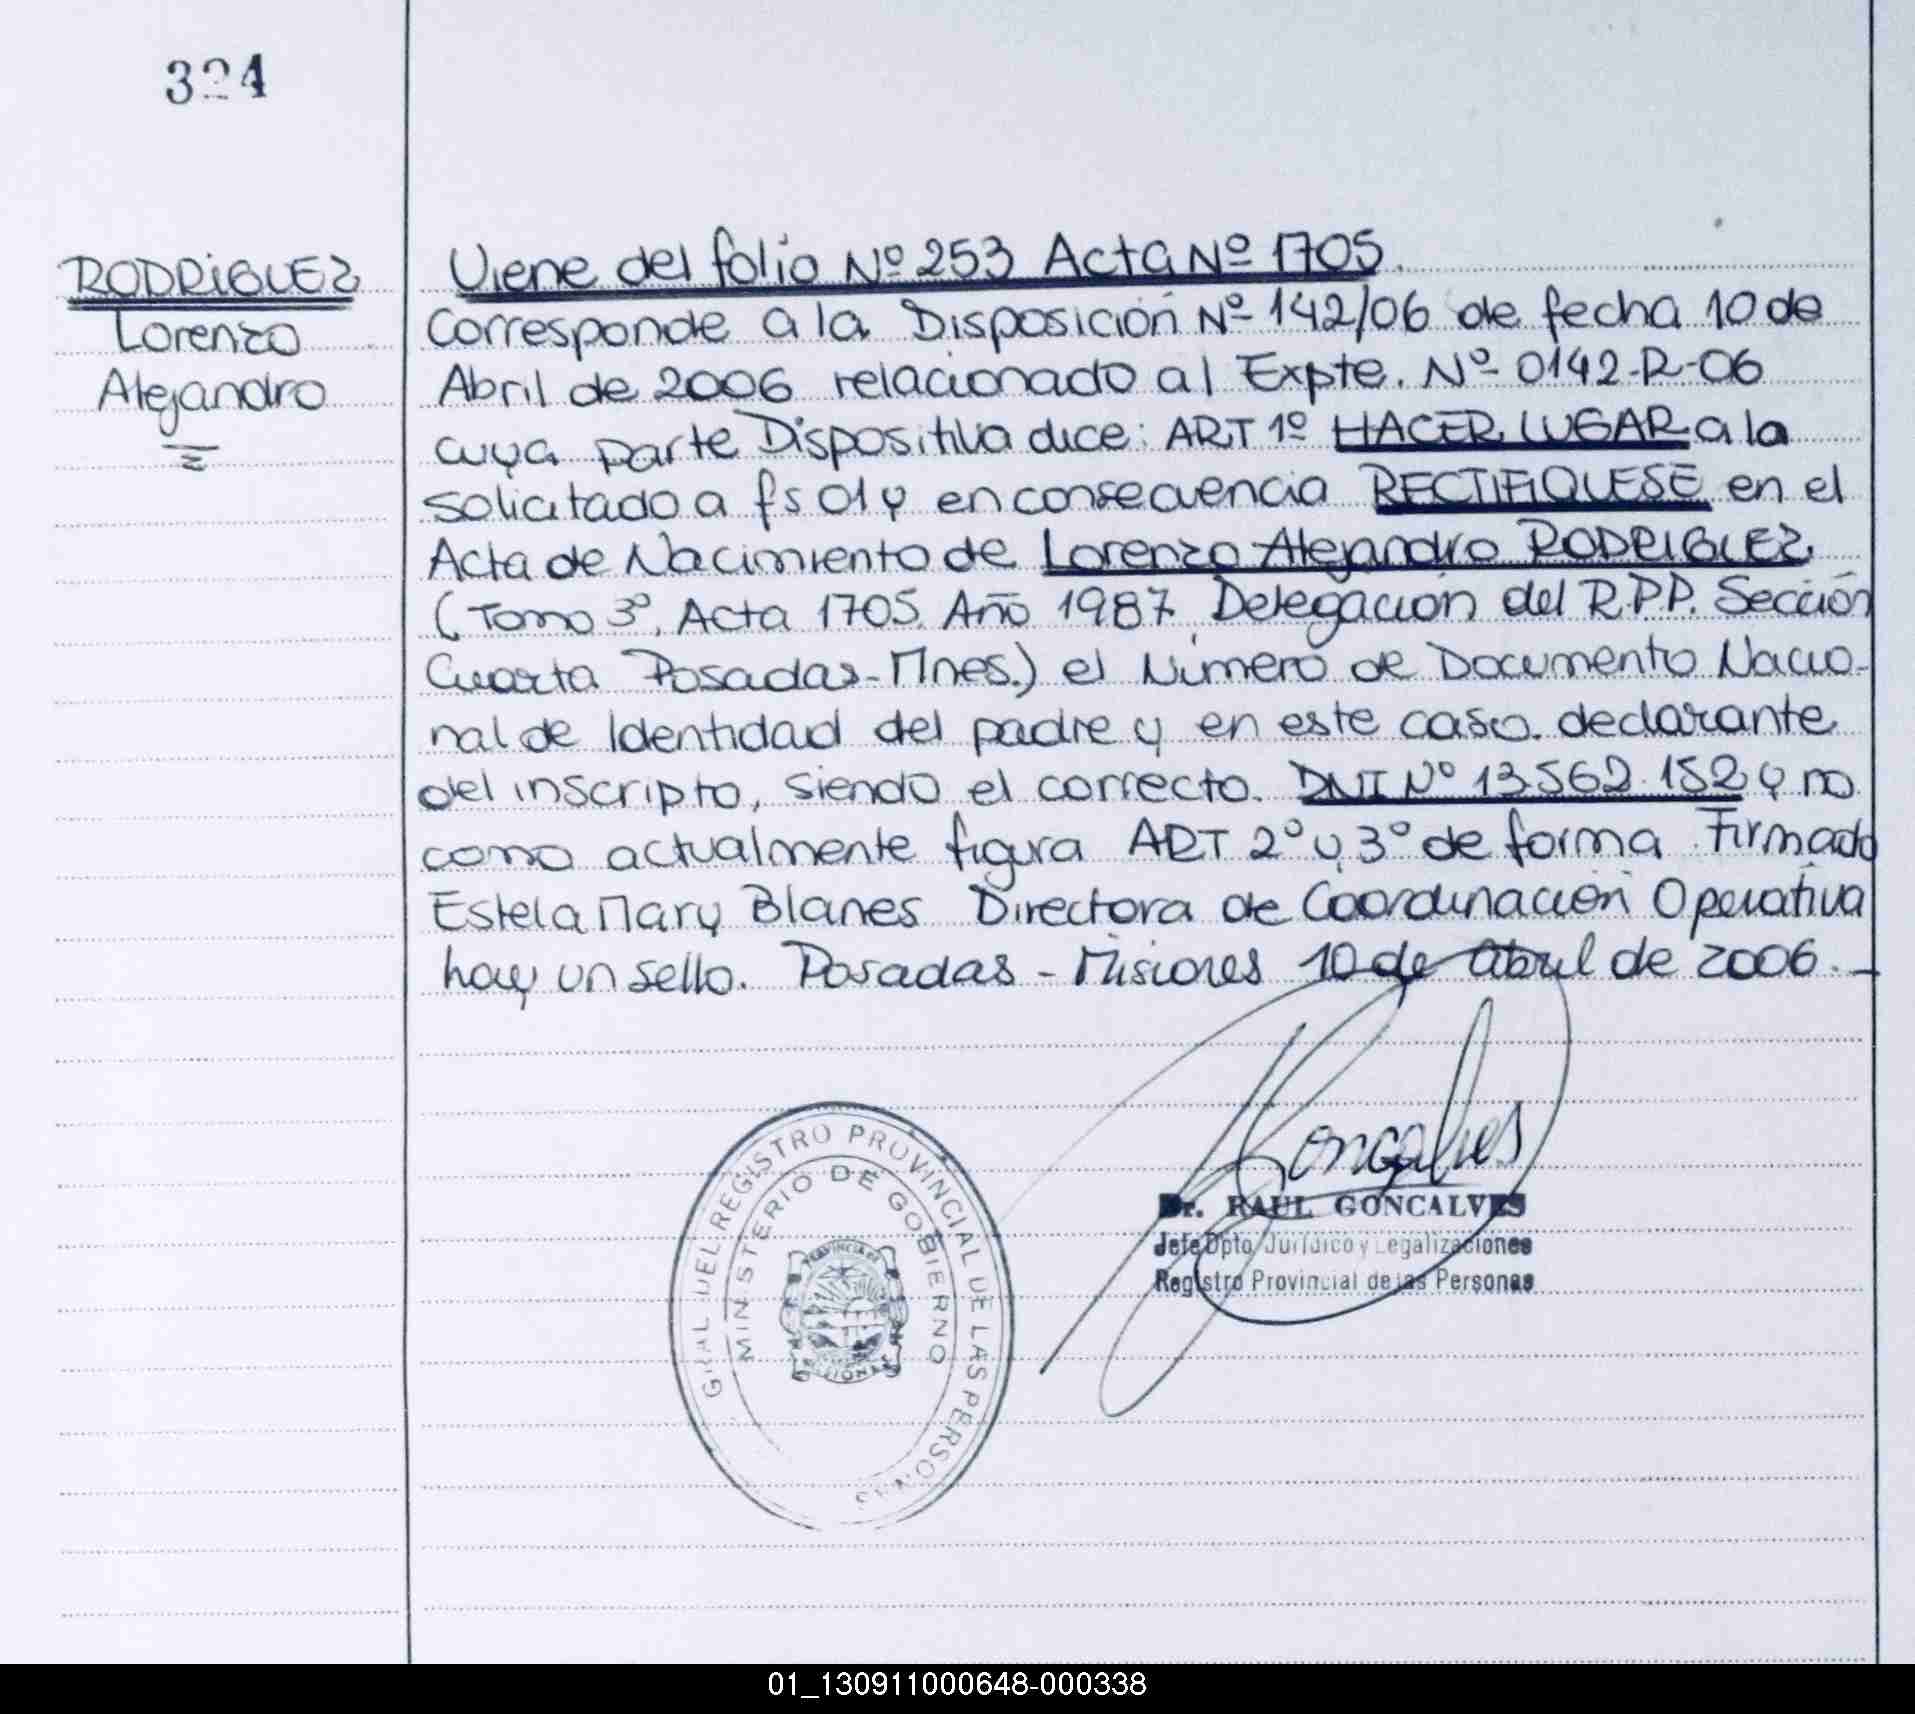 324
RODRIGUEZ
Lorenzo
Alejandro
Viene del folio Nº 253 Acta Nº 1705.
Corresponde a la Disposición Nº 142/06 de fecha 10 de
Abril de 2006 relacionado al Expte. Nº 0142-R-06
cuya parte Dispositiva dice: ART 1º HACER LUGAR a la
solicitado a fs 01 y en consecuencia RECTIFIQUESE en el
Acta de Nacimiento de Lorenzo Alejandro RODRIGUEZ
(Tomo 3º, Acta 1705, Año 1987, Delegación del R.P.P. Sección
Cuarta Posadas-Mnes.) el Número de Documento Nacio-
nal de Identidad del padre y en este caso. declarante
del inscripto, siendo el correcto. DNI Nº 13.562.152 y no
como actualmente figura ART 2º y 3º de forma. Firmado
Estela Mary Blanes Directora de Coordinación Operativa
hay un sello. Posadas - Misiones 10 de abril de 2006. _
GRAL DEL REGISTRO PROVINCIAL DE LAS PERSONAS
MINISTERIO DE GOBIERNO
PROVINCIA DE
MISIONES
Goncalves
Dr. RAUL GONCALVES
Jefe Dpto Jurídico y Legalizaciones
Registro Provincial de las Personas
01_130911000648-000338